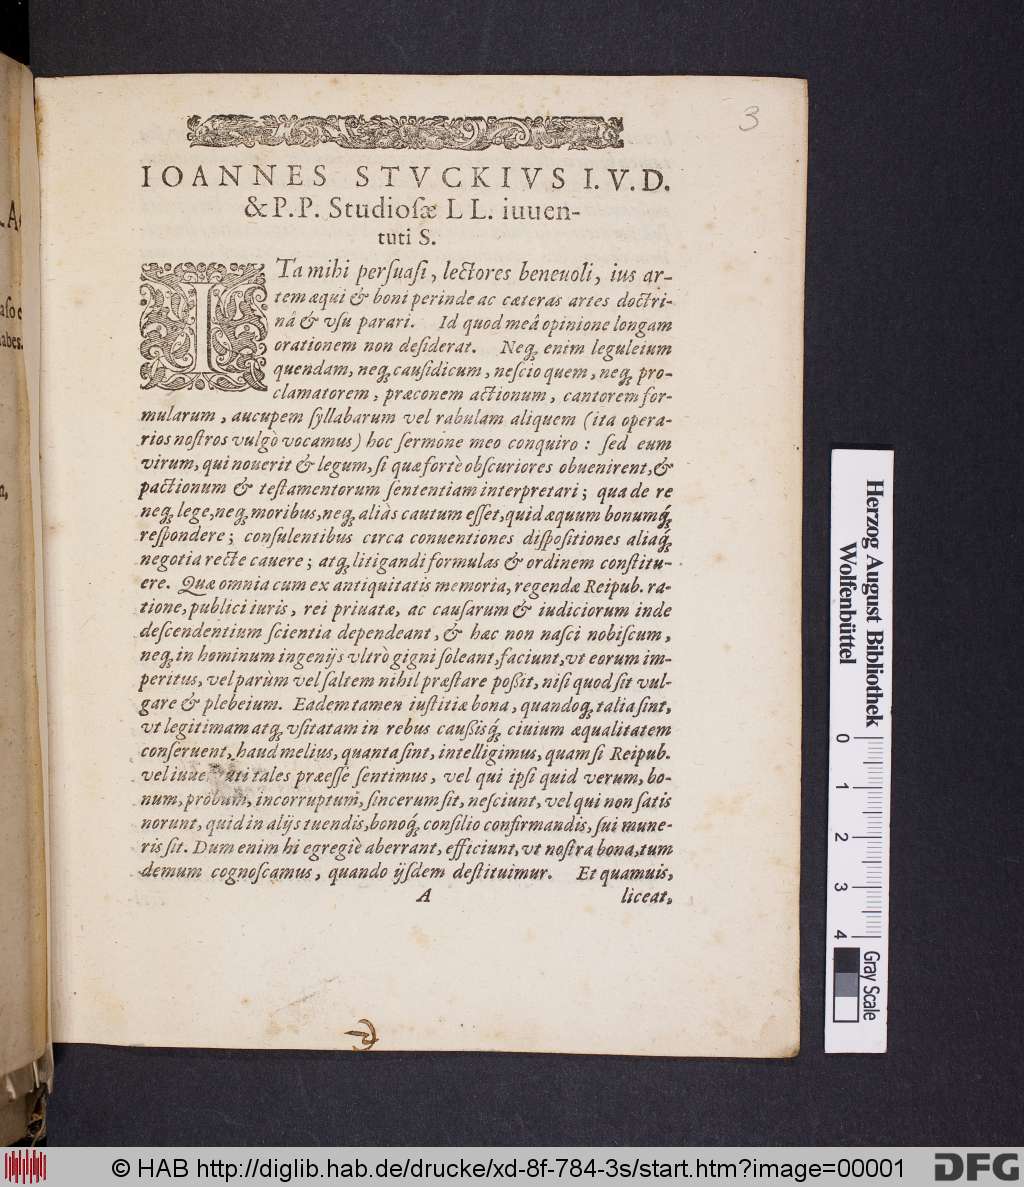 3
IOANNES STVCKIVS I.V.D.
& P.P. Studioſæ LL. iuuen-
tuti S.
ITa mihi perſuaſi, lectores beneuoli, ius ar-
tem æqui & boni perinde ac cæteras artes doctri-
nâ & vſu parari. Id quod meâ opinione longam
orationem non deſiderat. Neq́; enim leguleium
quendam, neq́; cauſidicum, neſcio quem, neq́; pro-
clamatorem, præconem actionum, cantorem for-
mularum, aucupem ſyllabarum vel rabulam aliquem (ita opera-
rios noſtros vulgò vocamus) hoc ſermone meo conquiro: ſed eum
virum, qui nouerit & legum, ſi quæ fortè obſcuriores obuenirent, &
pactionum & teſtamentorum ſententiam interpretari; qua de re
neq́; lege, neq́; moribus, neq́; aliàs cautum eſſet, quid æquum bonumq́;
reſpondere; conſulentibus circa conuentiones diſpoſitiones aliaq́;
negotia recte cauere; atq́; litigandi formulas & ordinem conſtitu-
ere. Quæ omnia cum ex antiquitatis memoria, regendæ Reipub. ra-
tione, publici iuris, rei priuatæ, ac cauſarum & iudiciorum inde
deſcendentium ſcientia dependeant, & hæc non naſci nobiſcum,
neq́; in hominum ingenijs vltrò gigni ſoleant, faciunt, vt eorum im-
peritus, vel parùm vel ſaltem nihil præſtare poßit, niſi quod ſit vul-
gare & plebeium. Eadem tamen iuſtitiæ bona, quandoq́; talia ſint,
vt legitimam atq́; vſitatam in rebus caußisq́; ciuium æqualitatem
conſeruent, haud melius, quanta ſint, intelligimus, quam ſi Reipub.
vel iuue ti tales præeſſe ſentimus, vel qui ipſi quid verum, bo-
num, probum, incorruptum, ſincerum ſit, neſciunt, vel qui non ſatis
norunt, quid in alijs tuendis, bonoq́; conſilio confirmandis, ſui mune-
ris ſit. Dum enim hi egregiè aberrant, efficiunt, vt noſtra bona, tum
demum cognoſcamus, quando ijſdem deſtituimur. Et quamuis,
A liceat,
Herzog August Bibliothek
Wolfenbüttel
0 1 2 3 4
Gray Scale
© HAB http://diglib.hab.de/drucke/xd-8f-784-3s/start.htm?image=00001
DFG